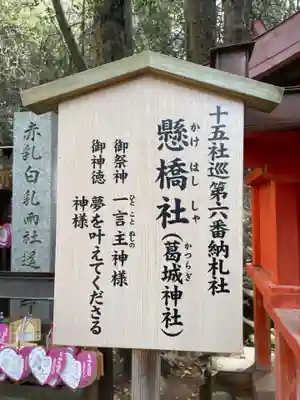 十五社巡第六番納札社
懸橋社(葛城神社)
かけ はし しゃ
かつらぎ
御祭神 一言主神様
ひと こと ぬしの
御神徳 夢を叶えてくださる
神様
赤乳白乳両社遥